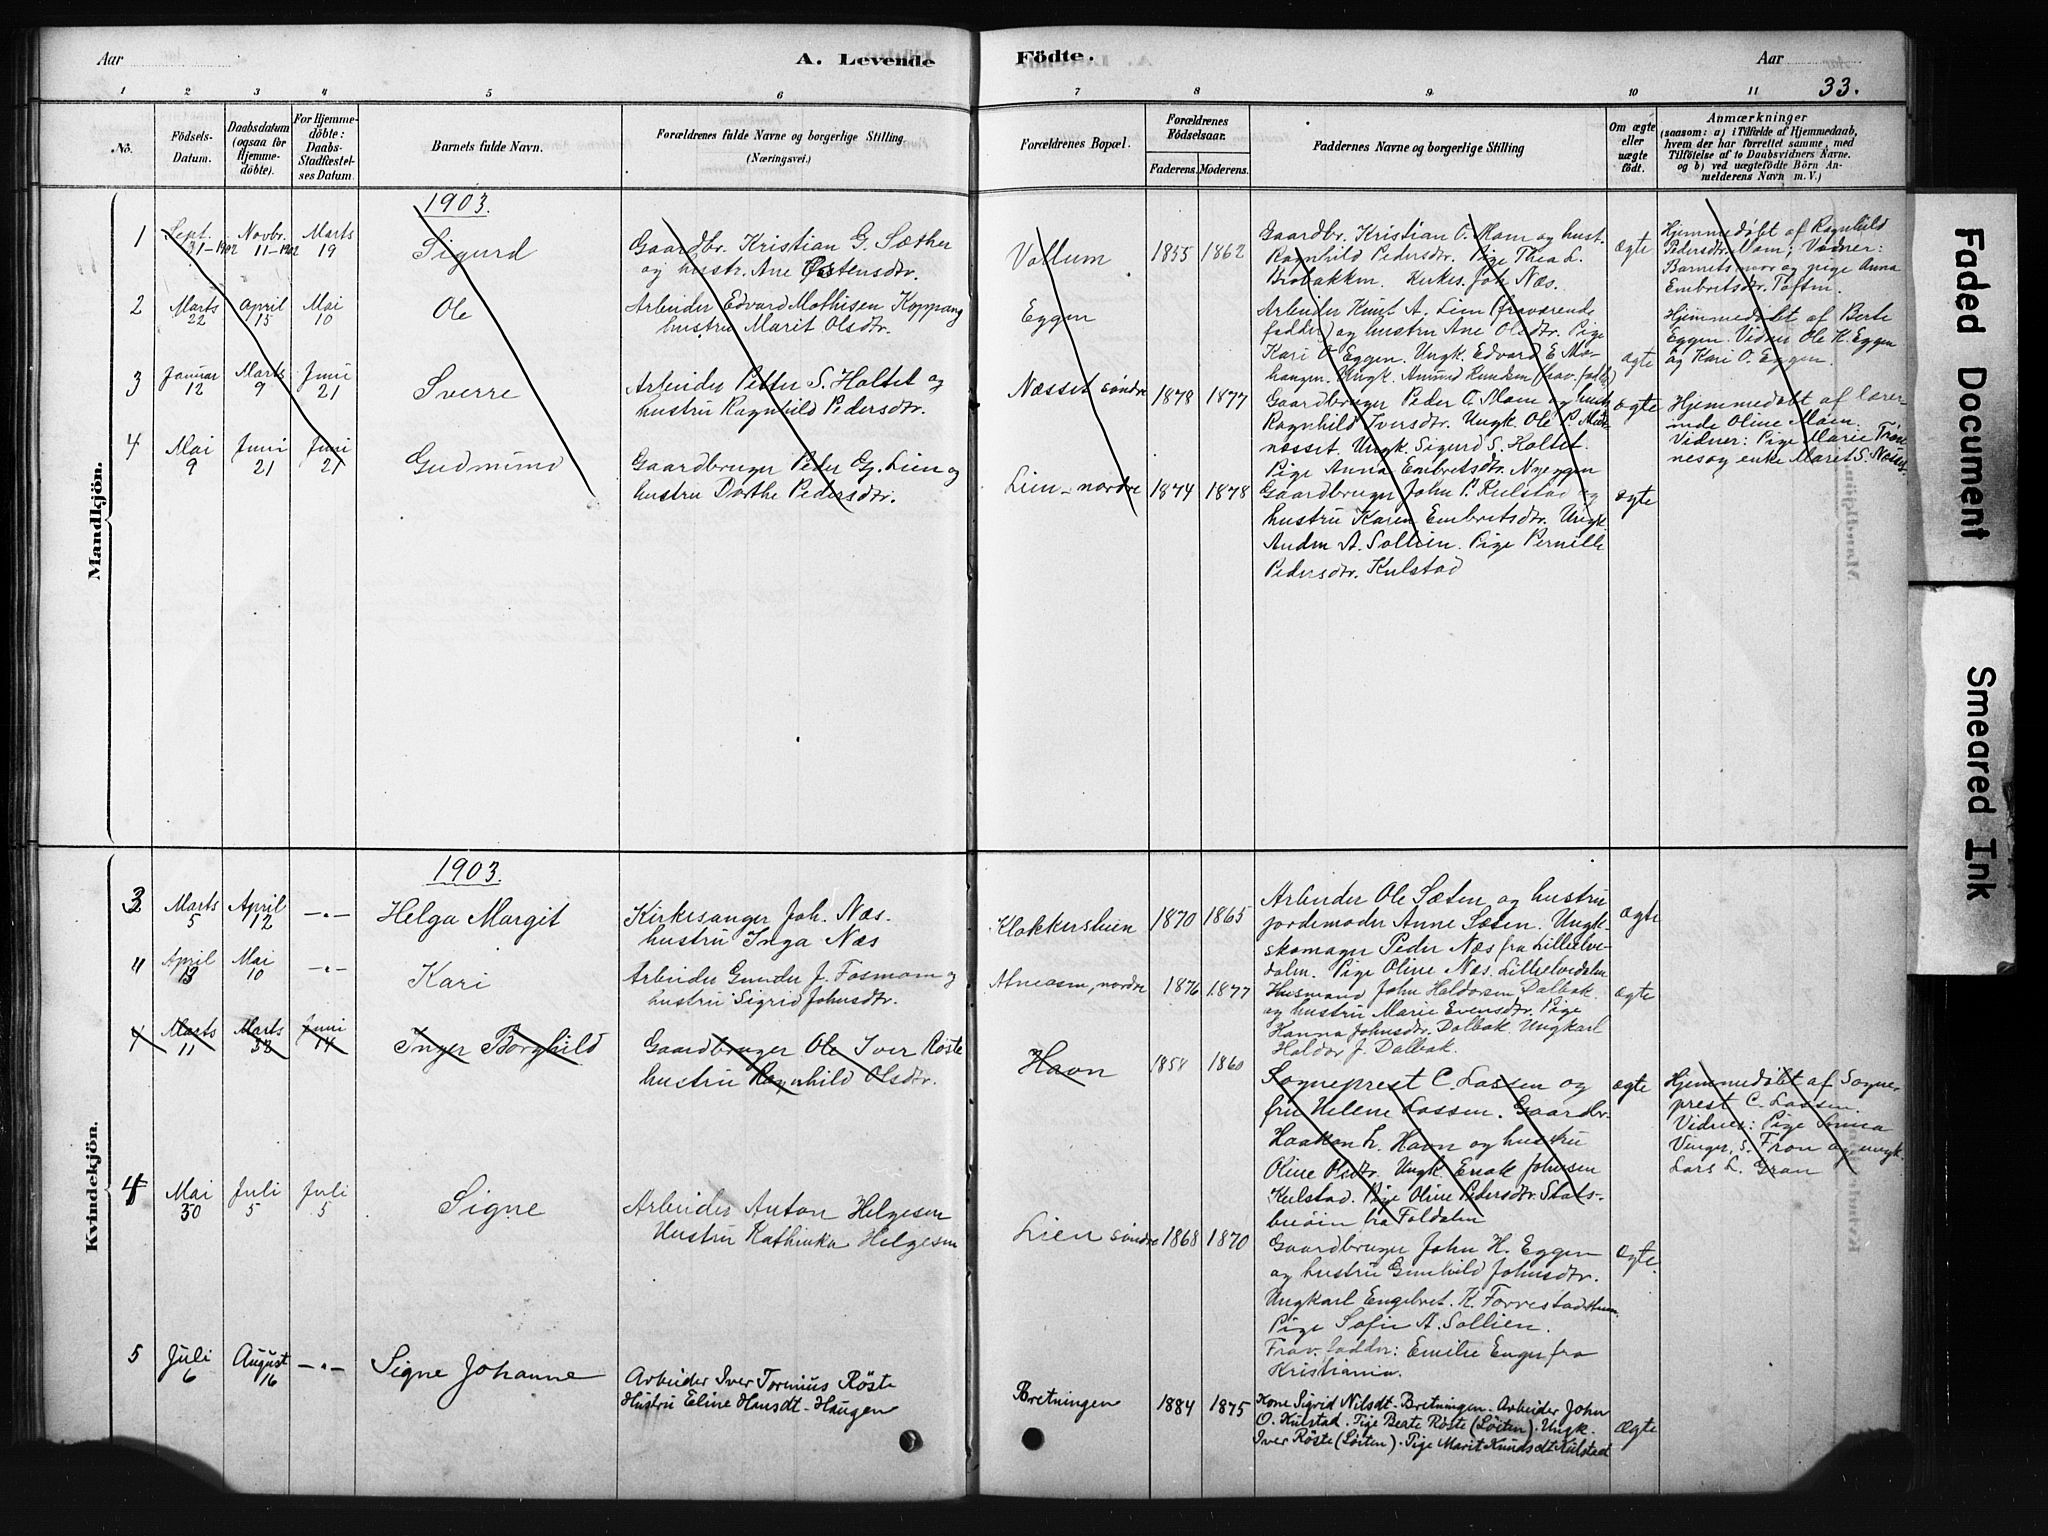 Aar
A. Levende
Födte.
Aar
33.
1 2 3 4 5 6 7 8 9 10 11
No.
Födsels-
Datum.
Daabsdatum
(ogsaa for
Hjemme-
döbte).
For Hjemme-
döbte:
Daabs-
Stadfæstel-
ses Datum.
Barnets fulde Navn.
Forældrenes fulde Navne og borgerlige Stilling.
(Næringsvei.)
Forældrenes Bopæl.
Forældrenes
Födselsaar.
Faderens. Moderens.
Faddernes Navne og borgerlige Stilling
Om ægte
eller
uægte
födt.
Anmærkninger
(saasom: a) i Tilfælde af Hjemmedaab,
hvem der har forrettet samme, med
Tilföielse af to Daabsvidners Navne.
og b) ved uægtefödte Börn An-
melderens Navn m. V.)
Mandkjön.
1903.
1
Sept.
31-1902
Novbr.
11-1902
Marts
19
Sigurd
Gaardbr. Kristian G. Sæther
og hustr. Ane Østensdtr.
Vollum
1855 1862
Gaardbr. Kristian O. Moen og hust.
Ragnhild Pedersdtr. Pige Thea L.
Brobakken. Kirkes. Joh. Næs.
ægte
Hjemmedøbt af Ragnhild
Pedersdtr. Moen; Vidner:
Barnets mor og pige Anna
Embretsdtr. Toften.
2
Marts
22
April
15
Mai
10
Ole
Arbeider Edvard Mathisen Koppang
hustru Marit Olsdtr.
Eggen
Arbeider Knut A. Lien (fraværende
fadder) og hustru Ane Olsdtr. Pige
Kari O. Eggen. Ungk. Edvard E. Mo-
hangen. Ungk. Amund Runden (frav. fadder)
ægte
Hjemmedøbt af Berte
Eggen. Vidner Ole H. Eggen
og Kari O. Eggen.
3
Januar
12
Marts
9
Juni
21
Sverre
Arbeider Petter S. Holtet og
hustru Ragnhild Pedersdtr.
Næsset søndre
1878 1877
Gaardbruger Peder O. Moen og hust.
Ragnhild Iversdtr. Ungk. Ole P. Midt-
næsset. Ungk. Sigurd S. Holtet.
Pige Anna Embretsdtr. Nyeggen
ægte
Hjemmedøbt af lærer-
inde Oline Moen.
Vidner: Pige Marie Trøn-
nes og enke Maret S. Næsset
4
Mai
9
Juni
21
Juni
21
Gudmund
Gaardbruger Peder Gj. Lien og
hustru Dorthe Pedersdtr.
Lien nordre
1874 1878
Gaardbruger John P. Kulstad og
hustru Karen Embretsdtr. Ungk.
Anders A. Sollien. Pige Pernille
Pedersdtr. Kulstad
ægte
Kvindekjön.
1903.
3
Marts
5
April
12
-"-
Helga Margit
Kirkesanger Joh. Næs.
hustru Inga Næs
Klokkersteien
1870 1865
Arbeider Ole Sæten og hustru
jordemoder Anne Sæten. Ungk.
skomager Peder Næs fra Lilleelve-
dalen. Pige Oline Næs. Lilleelvedalen
ægte
"
April
13
Mai
10
-"-
Kari
Arbeider Gunder J. Fosmoen og
hustru Sigrid Johnsdtr.
Atneosen, nordre
1876 1877
Husmand John Haldorsen Dalbak.
og hustru Marie Evensdtr. Pige
Hanna Johnsdtr. Dalbak. Ungkarl
Haldor J. Dalbak.
ægte
Marts
11
Marts
Juni
14
Inger Borghild
Gaardbruger Ole Iver Røste
hustru Ragnhild Olsdtr.
Havn
1858 1860
Sogneprest C. Lassen og
fru Helene Lassen. Gaardbr.
Haakon L. Havn og hustru
Oline Olsdtr. Ungk. Enok Johnsen
Kulstad. Pige Oline Pedersdtr. Stads-
buøien fra Foldalen
ægte
Hjemmedøbt af Sogne-
prest C. Lassen.
Vidner: Pige Anna
Vinger, S. Fron og ungk.
Lars L. Gran
4
Mai
30
Juli
5
Juli
5
Signe
Arbeider Anton Helgesen
Hustru Kathinka Helgesen
Lien søndre
1868 1870
Gaardbruger John H. Eggen
og hustru Gunhild Johnsdtr.
Ungkarl Engebret. K. Forrestadstuen.
Pige Sofie A. Sollien.
Frav. fadder: Emilie Enger fra
Kristiania.
ægte.
5
Juli
6
August
16
-"-
Signe Johanne
Arbeider Iver Torinius Røste
Hustru Eline Hansdt. Haugen
Bretningen
1884 1875
Kone Sigrid Nilsdt. Bretningen. Arbeider John
O. Kulstad. Pige Beate Røste (Løiten). Ungk.
Iver Røste (Løiten). Pige Marit Knudsdt Kulstad
ægte
Faded Document
Smeared Ink